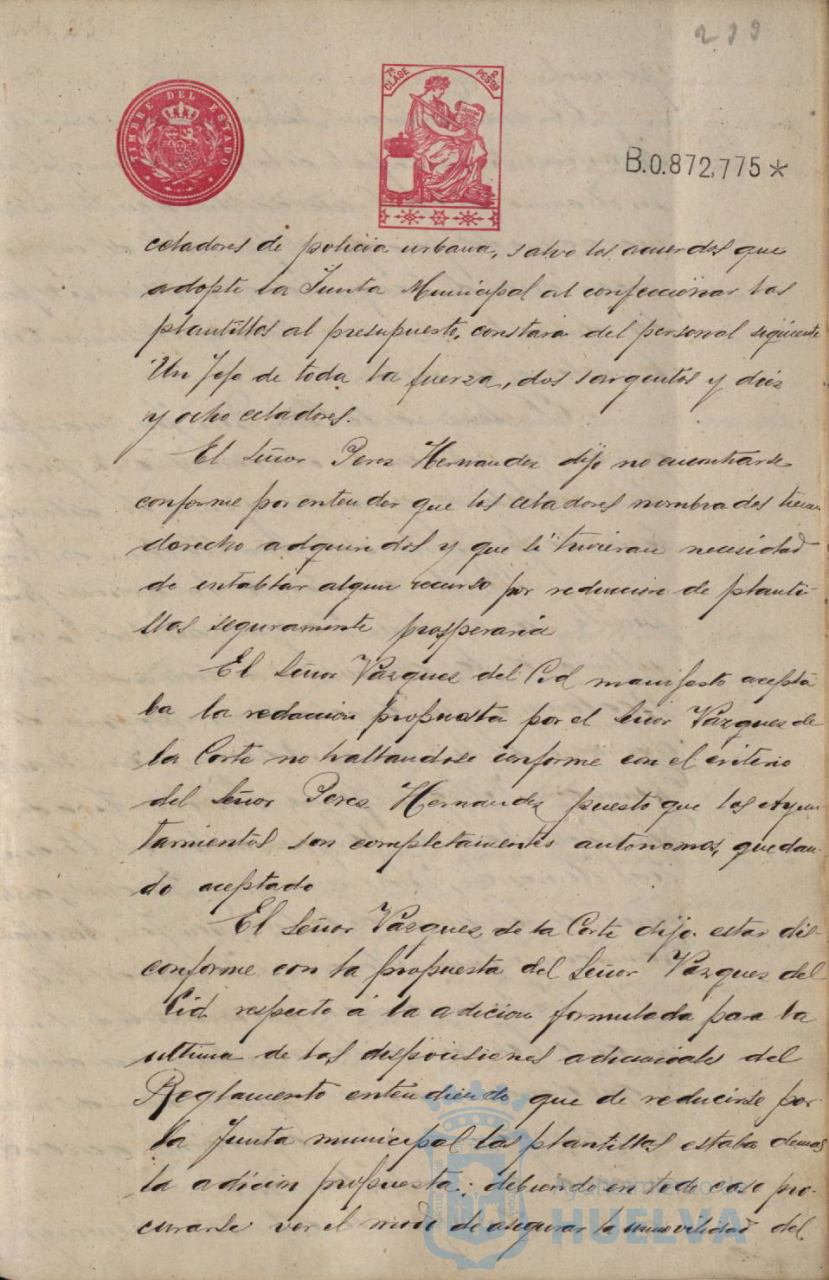 299
TIMBRE DEL ESTADO
7ª CLASE 2 PESTAS
B.0.872,775*
celadores de policia urbana, salvo los acuerdos que
adopte la Junta Municipal al confeccionar las
plantillas al presupuesto, constará del personal siguiente
Un Jefe de toda la fuerza, dos sargentos y diez
y ocho celadores.
El Señor Perez Hernandez dijo no encontrarse
conforme por entender que los celadores nombrados tienen
derecho adquiridos y que si tuvieran necesidad
de entablar algun recurso por reduccion de planti-
llas seguramente prosperaria
El Señor Vázquez del Cid manifesto acepta
ba la redaccion propuesta por el Señor Vázquez de
la Corte no hallandose conforme con el criterio
del Señor Perez Hernandez puesto que los Ayun-
tamientos son completamente autonomos, quedan-
do aceptado
El Señor Vázquez de la Corte dijo estar dis-
conforme con la propuesta del Señor Vázquez del
Cid respecto á la adicion formulada para la
ultima de las disposiciones adicionales del
Reglamento entendiendo que de reducirse por
la Junta municipal las plantillas estaba demas
la adicion propuesta; debiendo en todo caso pro-
curarse ver el modo de asegurar la inmovilidad del
Ayuntamiento de
HUELVA